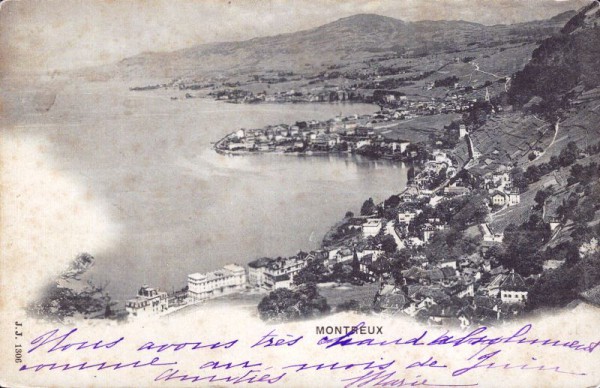 MONTREUX
J.J. 1306
Nous avons très chaud absolument
comme au mois de Juin
Amitiés Marie